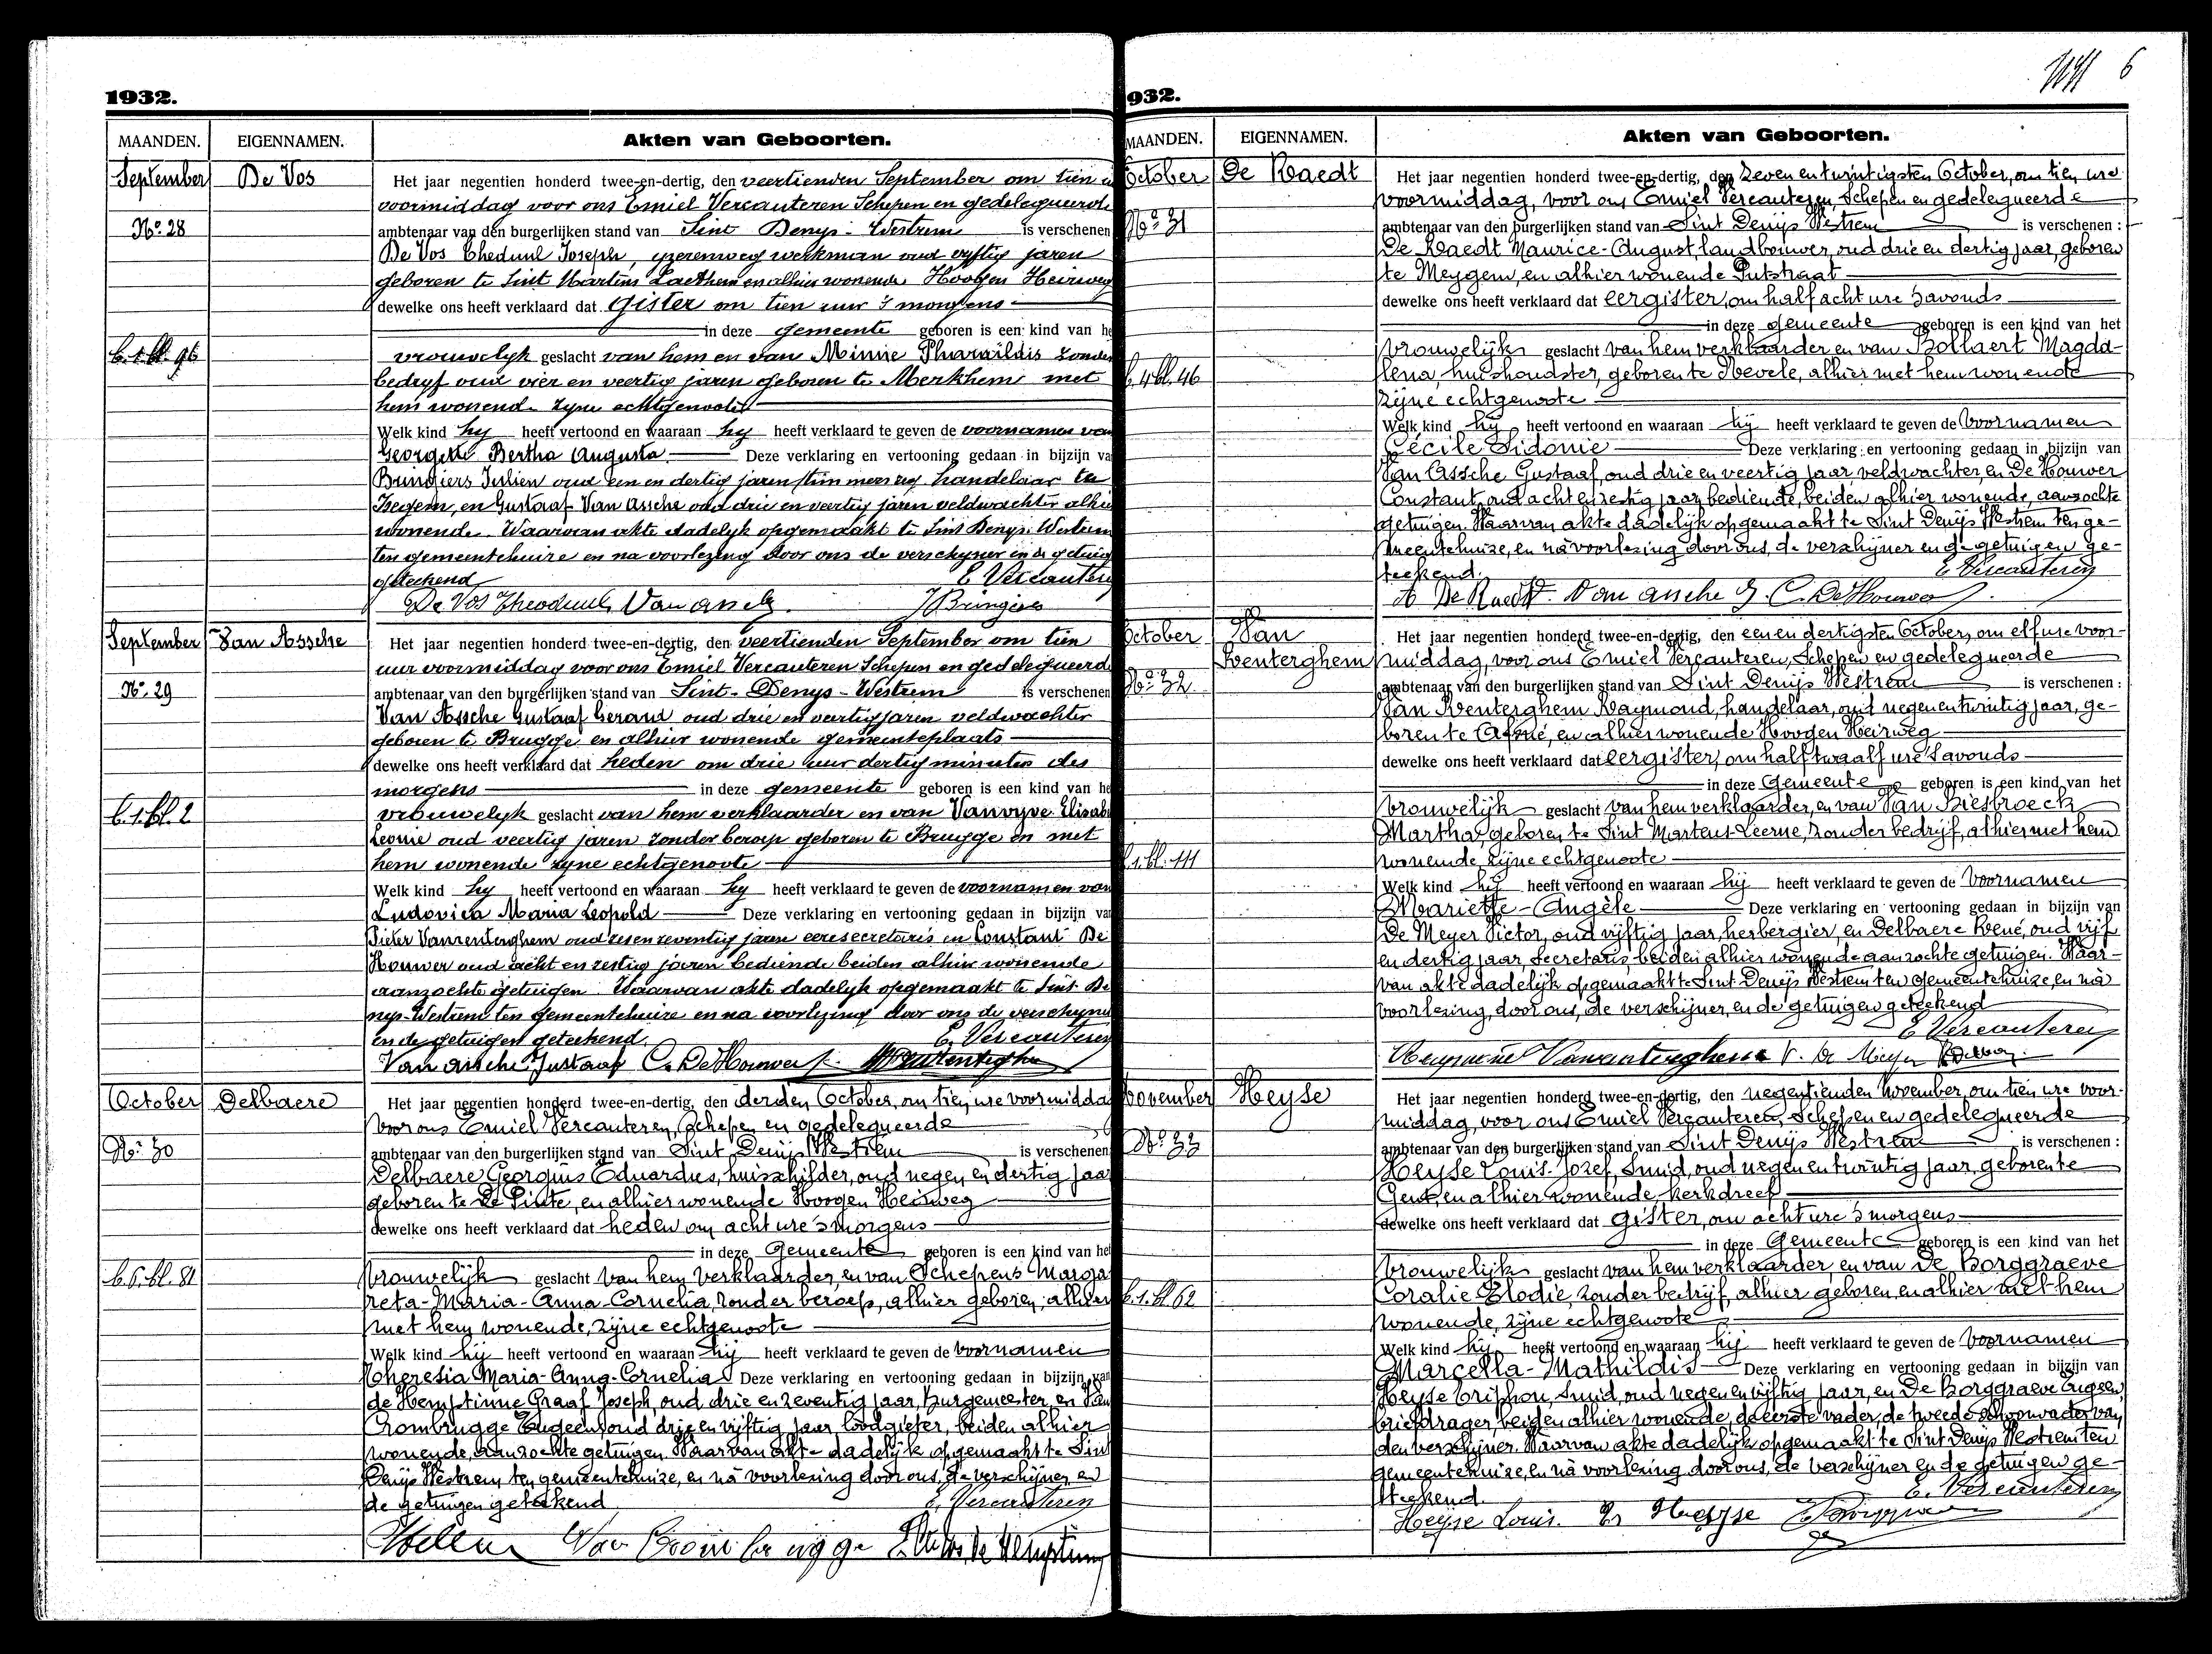 1932.
MAANDEN. EIGENNAMEN. Akten van Geboorten.
September De Vos
No. 28
b. 1. bl. 96
Het jaar negentien honderd twee-en-dertig, den veertienden September om tien
voormiddag voor ons Emiel Vercauteren Schepen en gedelegueerde
ambtenaar van den burgerlijken stand van Sint Denys-Westrem is verschenen
De Vos Thedule Joseph, yzerenweg werkman oud vyftig jaren
geboren te Sint Martens Laethem en alhier wonende Hoogen Heirweg
dewelke ons heeft verklaard dat gister om tien uur 's morgens
in deze gemeente geboren is een kind van he
vrouwelyk geslacht van hem en van Minne Pharaïldis zonder
bedryf oud vier en veertig jaren geboren te Merkhem met
hem wonende zyne echtgenoote
Welk kind hy heeft vertoond en waaraan hy heeft verklaard te geven de voornamen van
Georgette Bertha Augusta Deze verklaring en vertooning gedaan in bijzijn va
Bringiers Julien oud een en dertig jaren handelaar te
Isegem, en Gustaaf Van Assche oud drie en veertig jaren veldwachter alhier
wonende. Waarvan akte dadelyk opgemaakt te Sint Denys-Westrem
ten gemeentehuize en na voorlezing door ons de verschyner en de getuig
geteekend E Vercauteren
De Vos Theodule Van assche J Bringiers
September Van Assche
No. 29
b. 1. bl. 2
Het jaar negentien honderd twee-en-dertig, den veertienden September om tien
uur voormiddag voor ons Emiel Vercauteren Schepen en gedelegueerde
ambtenaar van den burgerlijken stand van Sint-Denys-Westrem is verschenen
Van Assche Gustaaf Gerard oud drie en veertig jaren veldwachter
geboren te Brugge en alhier wonende gemeenteplaats
dewelke ons heeft verklaard dat heden om drie uur dertig minuten des
morgens in deze gemeente geboren is een kind van he
vrouwelyk geslacht van hem verklaarder en van Vanvyve Elisab
Leonie oud veertig jaren zonder beroep geboren te Brugge en met
hem wonende zyne echtgenoote
Welk kind hy heeft vertoond en waaraan hy heeft verklaard te geven de voornamen van
Ludovica Maria Leopold Deze verklaring en vertooning gedaan in bijzijn van
Pieter Vanrenterghem oud zes en zeventig jaren eeresecretaris en Constant De
Houwer oud acht en zestig jaren bediende beiden alhier wonende
aanzochte getuigen. Waarvan akte dadelyk opgemaakt te Sint De
nys-Westrem ten gemeentehuize en na voorlezing door ons de verschyner
en de getuigen geteekend. E. Vercauteren
Van assche Gustaaf C. De Houwer
October Delbaere
No. 30
b. 6. bl. 81
Het jaar negentien honderd twee-en-dertig, den derden October, om tien ure voormidda
voor ons Emiel Vercauteren, Schepen en gedelegueerde
ambtenaar van den burgerlijken stand van Sint Denijs Westrem is verschenen
Delbaere Georgius Eduardus, huisschilder, oud negen en dertig jaar
geboren te De Pinte, en alhier wonende Hoogen Heirweg
dewelke ons heeft verklaard dat heden om acht ure 's morgens
in deze Gemeente geboren is een kind van het
vrouwelijk geslacht van hem verklaarder, en van Schepens Marga
reta-Maria-Anna-Cornelia, zonder beroep, alhier geboren, alhier
met hem wonende, zijne echtgenoote
Welk kind hij heeft vertoond en waaraan hij heeft verklaard te geven de voornamen
Theresia Maria-Anna-Cornelia Deze verklaring en vertooning gedaan in bijzijn van
de Hemptinne Graaf Joseph, oud drie en zeventig jaar, Burgemeester, en Van
Crombrugge Eugeen, oud drie en vijftig jaar, loodgieter, beiden alhier
wonende, aanzochte getuigen. Waarvan akte dadelijk opgemaakt te Sint
Denijs Westrem ten gemeentehuize, en nà voorlezing door ons, de verschijner en
de getuigen geteekend E. Vercauteren
Van Crombrugge
6
932.
MAANDEN. EIGENNAMEN. Akten van Geboorten.
October De Raedt
No. 31
b. 4 bl. 46
Het jaar negentien honderd twee-en-dertig, den zeven en twintigsten October, om tien ure
voormiddag, voor ons Emiel Vercauteren, Schepen en gedelegueerde
ambtenaar van den burgerlijken stand van Sint Denijs Westrem is verschenen :
De Raedt Maurice-August, landbouwer, oud drie en dertig jaar, geboren
te Meygem, en alhier wonende Putstraat
dewelke ons heeft verklaard dat eergister, om half acht ure 's avonds
in deze gemeente geboren is een kind van het
vrouwelijk geslacht van hem verklaarder en van Bollaert Magda-
lena, huishoudster, geboren te Nevele, alhier met hem wonende
zijne echtgenoote
Welk kind hij heeft vertoond en waaraan hij heeft verklaard te geven de voornamen
Cécile Sidonie Deze verklaring en vertooning gedaan in bijzijn van
Van Assche Gustaaf, oud drie en veertig jaar, veldwachter, en De Houwer
Constant, oud acht en zestig jaar, bediende, beiden alhier wonende, aanzochte
getuigen. Waarvan akte dadelijk opgemaakt te Sint Denijs Westrem ten ge-
meentehuize, en nà voorlezing door ons, de verschijner en de getuigen ge-
teekend. E Vercauteren
De Raedt. Van assche G. C. De Houwer
October Van
Renterghem
No. 32
b. 1. bl. 111
Het jaar negentien honderd twee-en-dertig, den een en dertigsten October, om elf ure voor-
middag, voor ons Emiel Vercauteren, Schepen en gedelegueerde
ambtenaar van den burgerlijken stand van Sint Denijs Westrem is verschenen :
Van Renterghem Raymond, handelaar, oud negen en twintig jaar, ge-
boren te Afsné, en alhier wonende Hoogen Heirweg
dewelke ons heeft verklaard dat eergister, om half twaalf ure 's avonds
in deze Gemeente geboren is een kind van het
vrouwelijk geslacht van hem verklaarder, en van Van Biesbroeck
Martha, geboren te Sint Martens-Leerne, zonder bedrijf, alhier met hem
wonende, zijne echtgenoote
Welk kind hij heeft vertoond en waaraan hij heeft verklaard te geven de voornamen
Mariette-Angèle Deze verklaring en vertooning gedaan in bijzijn van
De Meyer Victor, oud vijftig jaar, herbergier, en Delbaere René, oud vijf
en dertig jaar, Secretaris, beiden alhier wonende aanzochte getuigen. Waar-
van akte dadelijk opgemaakt te Sint Denijs Westrem ten gemeentehuize, en nà
voorlezing, door ons, de verschijner, en de getuigen geteekend
E Vercauteren
Raymond Vanrenterghem V. De Meyer
November Heyse
No. 33
b. 1. bl. 62
Het jaar negentien honderd twee-en-dertig, den negentienden November, om tien ure voor-
middag, voor ons Emiel Vercauteren, Schepen en gedelegueerde
ambtenaar van den burgerlijken stand van Sint Denijs Westrem is verschenen :
Heyse Louis-Jozef, Smid, oud negen en twintig jaar, geboren te
Gent, en alhier wonende, kerkdreef
dewelke ons heeft verklaard dat gister, om acht ure 's morgens
in deze Gemeente geboren is een kind van het
vrouwelijk geslacht van hem verklaarder, en van De Borggraeve
Coralie Elodie, zonder bedrijf, alhier geboren en alhier met hem
wonende, zijne echtgenoote
Welk kind hij heeft vertoond en waaraan hij heeft verklaard te geven de voornamen
Marcella-Mathildis Deze verklaring en vertooning gedaan in bijzijn van
Heyse Triphon, Smid, oud negen en vijftig jaar, en De Borggraeve Eugeen,
briefdrager, beiden alhier wonende, de eerste vader, de tweede schoonvader van
den verschijner. Waarvan akte dadelijk opgemaakt te Sint Denijs Westrem ten
gemeentehuize, en nà voorlezing door ons, de verschijner en de getuigen ge-
teekend. E. Vercauteren
Heyse Louis. Heyse